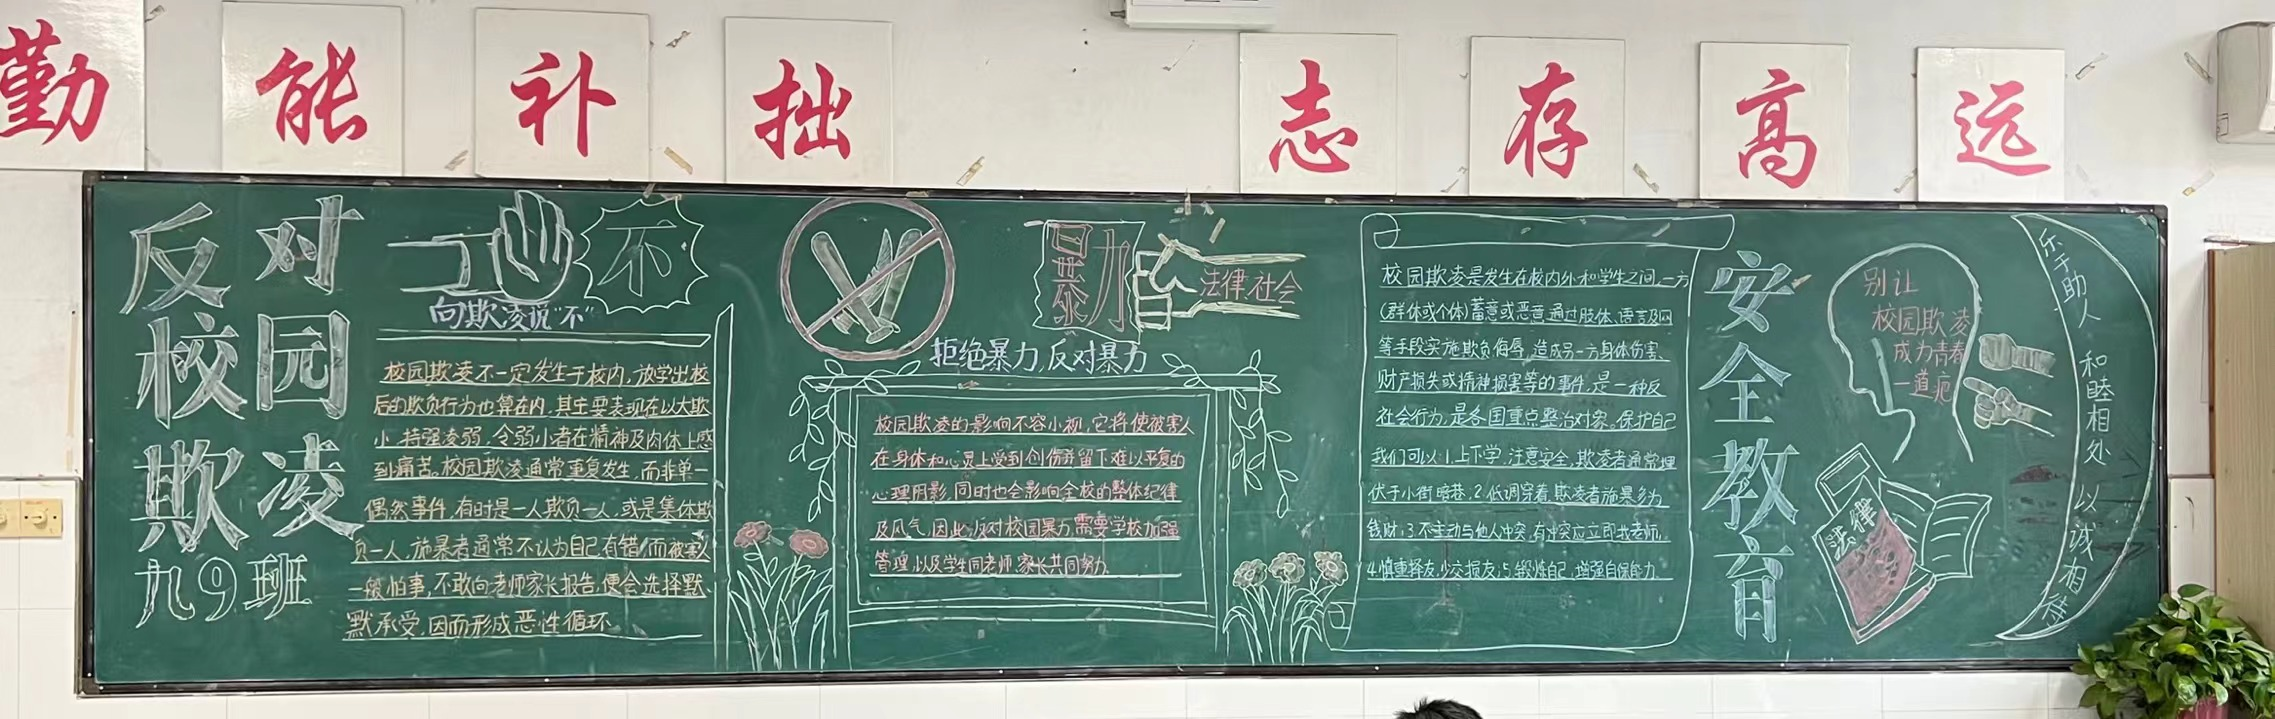 勤能补拙
志存高远
反对
校园
欺凌
九9班
不
向欺凌说"不"
校园欺凌不一定发生于校内,放学出校
后的欺负行为也算在内,其主要表现在以大欺
小,恃强凌弱,令弱小者在精神及肉体上感
到痛苦,校园欺凌通常重复发生,而非单一
偶然事件,有时是一人欺负一人,或是集体欺
负一人,施暴者通常不认为自己有错,而被害人
一般怕事,不敢向老师家长报告,便会选择默
默承受,因而形成恶性循环
暴力
法律 社会
拒绝暴力,反对暴力
校园欺凌的影响不容小视,它将使被害人
在身体和心灵上受到创伤并留下难以平复的
心理阴影,同时也会影响全校的整体纪律
及风气,因此,反对校园暴力需要学校加强
管理,以及学生同老师,家长共同努力
校园欺凌是发生在校内外和学生之间,一方
(群体或个体)蓄意或恶意通过肢体、语言及网
等手段实施欺负侮辱,造成另一方身体伤害、
财产损失或精神损害等的事件,是一种反
社会行为,是各国重点整治对象。保护自己
我们可以:1.上下学,注意安全,欺凌者通常埋
伏于小街暗巷,2.低调穿着,欺凌者施暴多为
钱财;3.不主动与他人冲突,有冲突应立即找老师,
4.慎重择友,少交损友;5.锻炼自己,增强自保能力
安全教育
别让
校园欺凌
成为青春
一道疤
法律
乐于助人 和睦相处 以诚相待